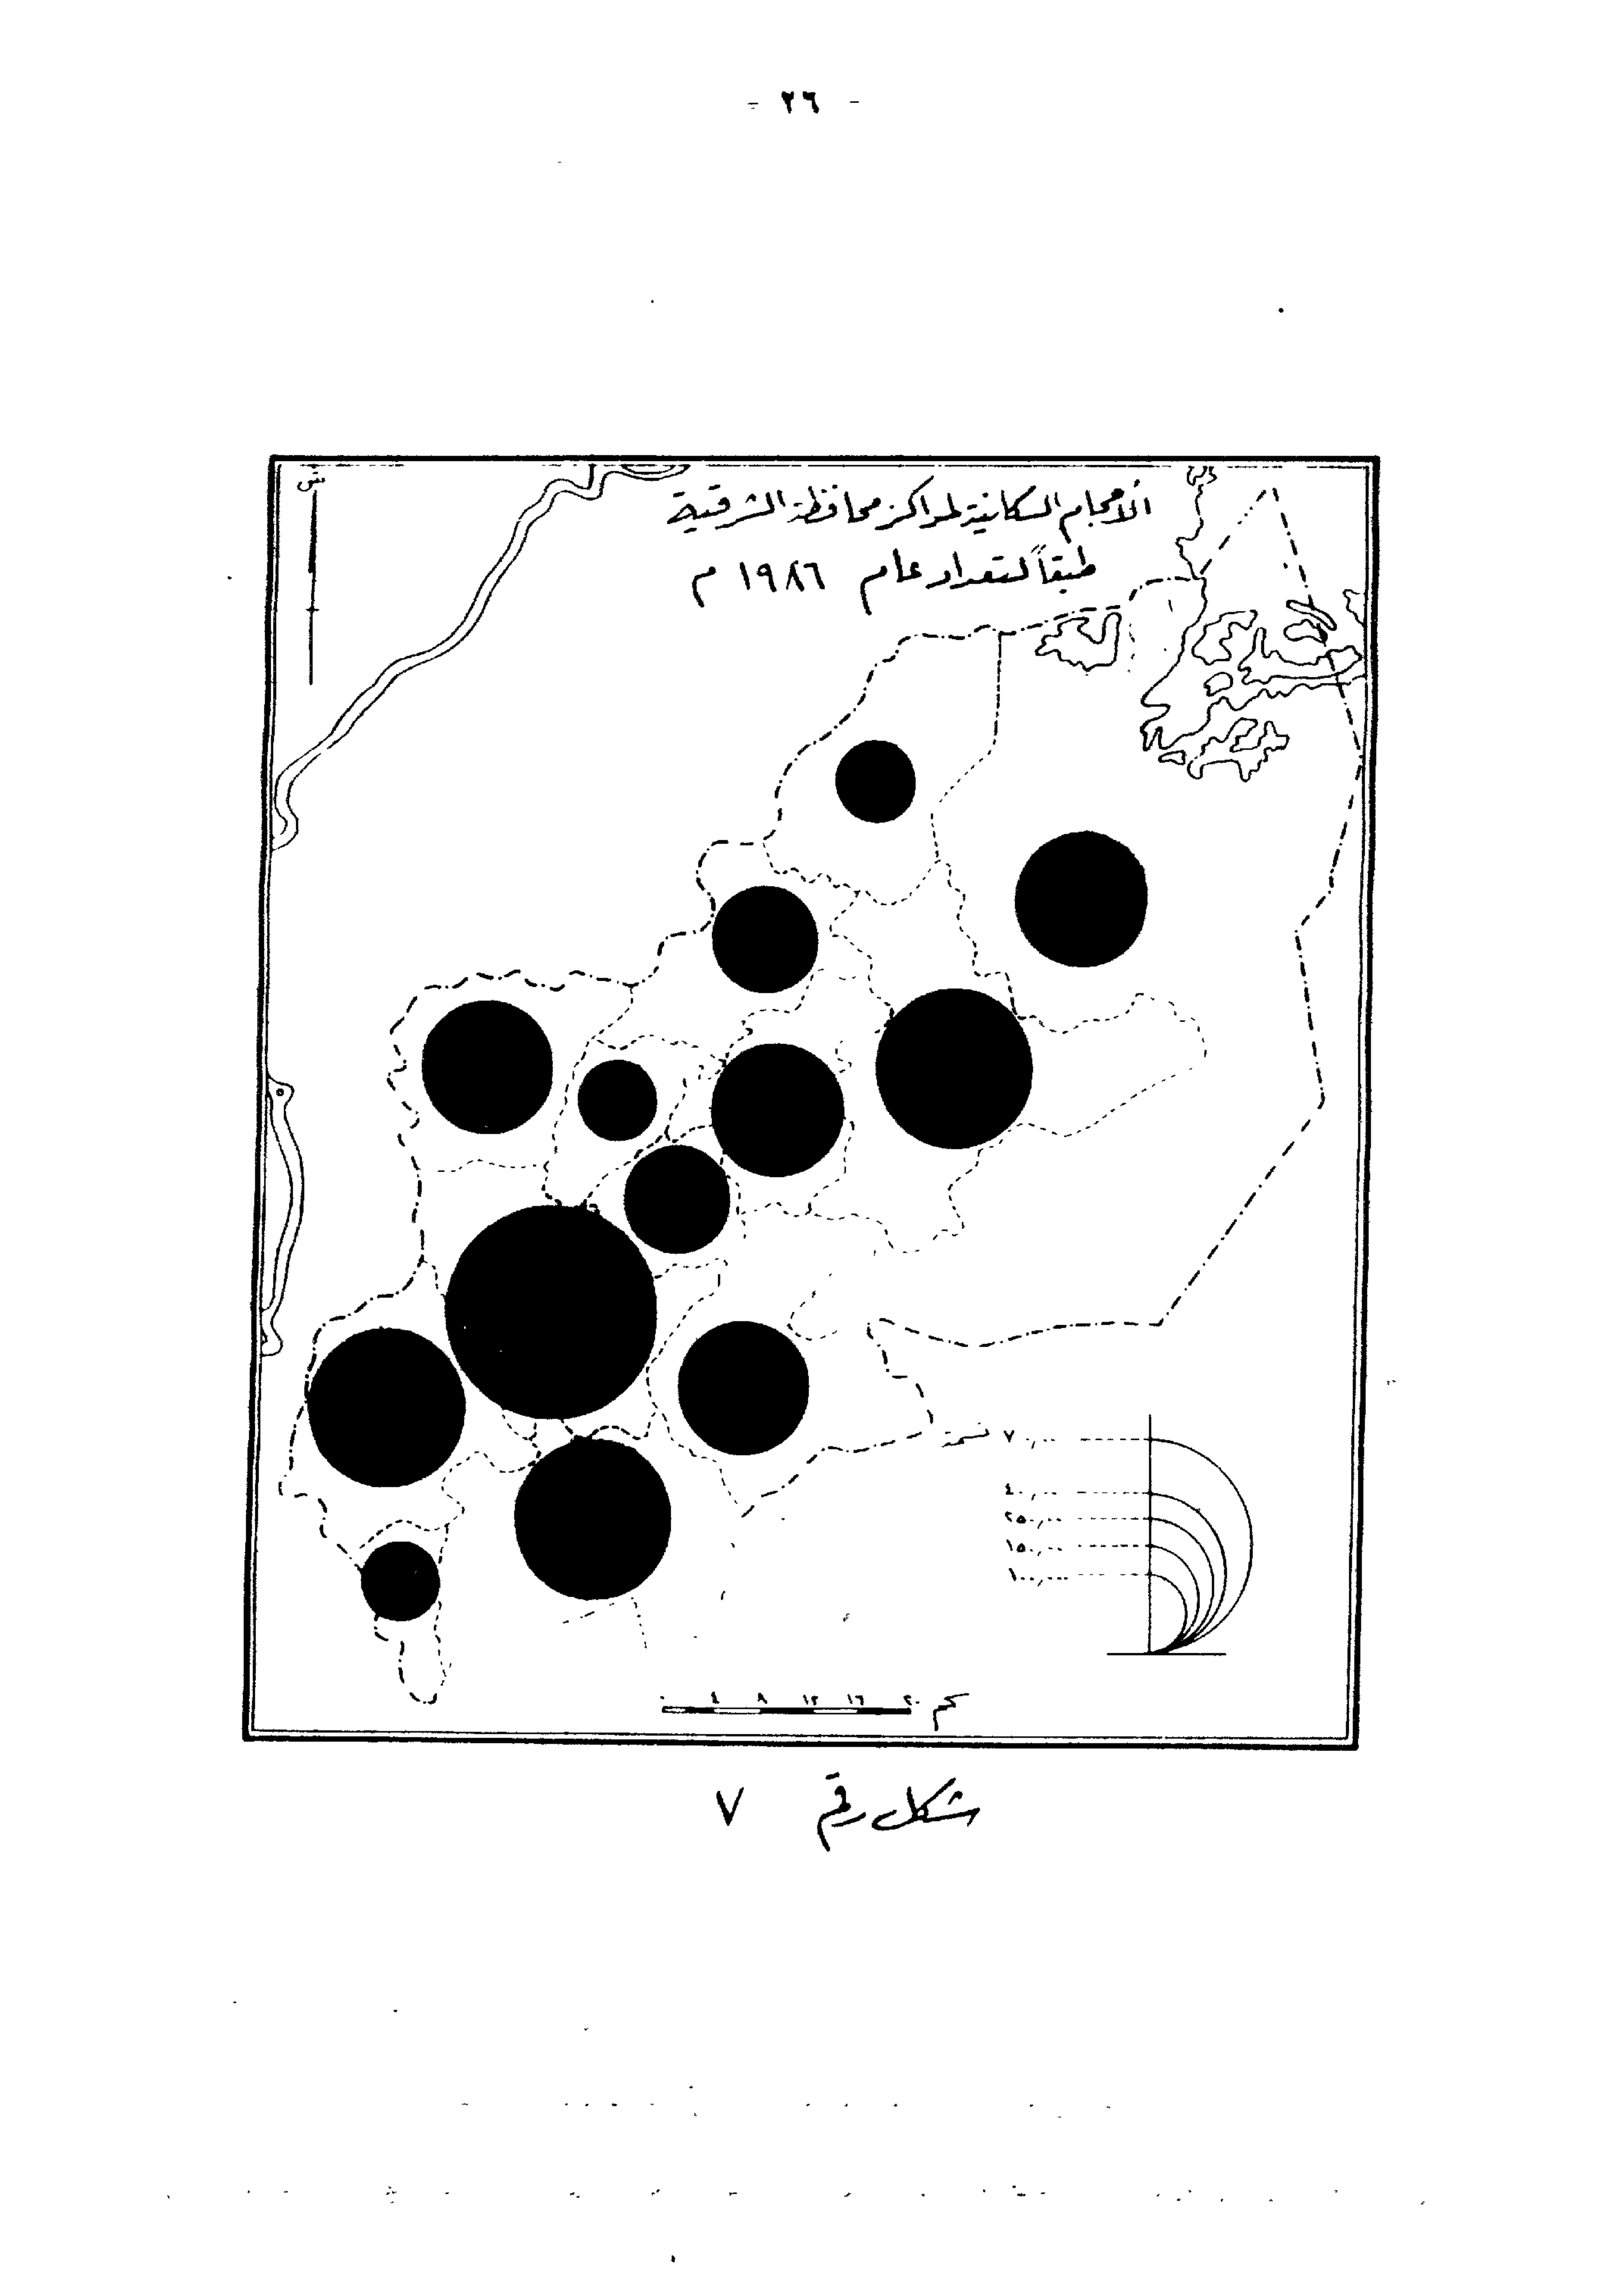 - ٢٦ -
ش
الأحجام السكانية لمراكز محافظة الشرقية
طبقاً لتعداد عام ١٩٨٦ م
٧٠٠٫٠٠٠ نسمة
٤٠٠٫٠٠٠
٢٥٠٫٠٠٠
١٥٠٫٠٠٠
١٠٠٫٠٠٠
٠ ٤ ٨ ١٢ ١٦ ٢٠ كم
شكل رقم ٧